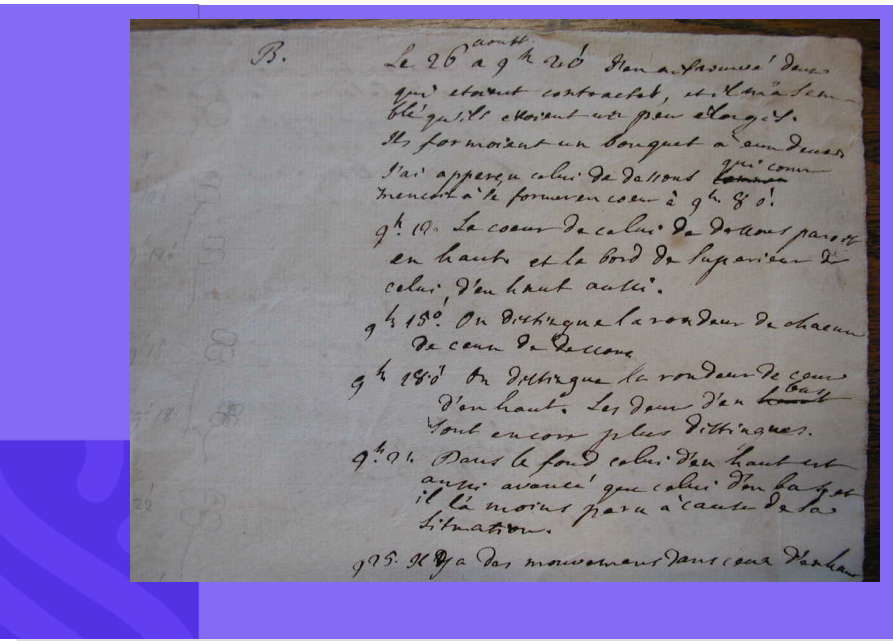 B.
aoust
Le 26 à 9h 20' J'en ai trouvé deux
qui etoient contractés, et il m'a sem-
blé qu'ils etoient un peu elargis.
Ils formoient un bouquet à eux deux
J'ai apperçu celui de dessous qui com-
mencoit à se former en coeur à 9h. 8'
9h. 12. Le coeur de celui de dessous paroit
en haut et le bord de superieur de
celui d'en haut aussi.
9h 15'. On distingue la rondeur de chacun
de ceux de dessous
9h 18' On distingue la rondeur de ceux
d'en haut. Les deux d'en bas
sont encore plus distingués.
9h. 21. Dans le fond celui d'en haut est
aussi avancé que celui d'en bas, et
il l'a moins paru à cause de sa
situation.
9 25. Il y a des mouvemens dans ceux d'en haut